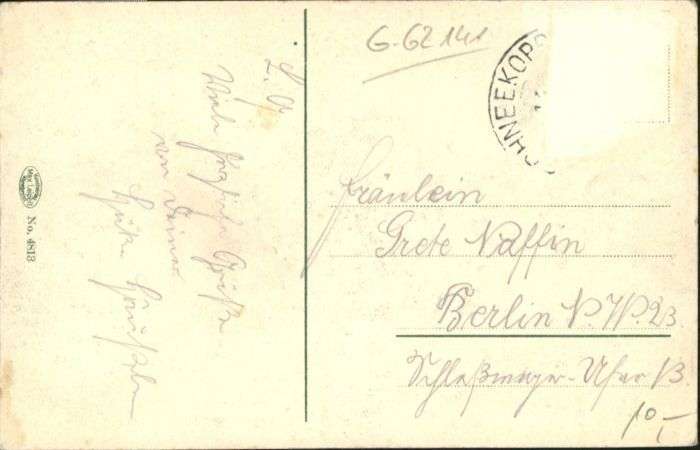 L. G.
Viele herzliche Grüße
von Deiner
No. 4813
G-62141
HNEEKOP
Fräulein
Grete Naffin
Berlin N.W.23
Ufer 13
10,-